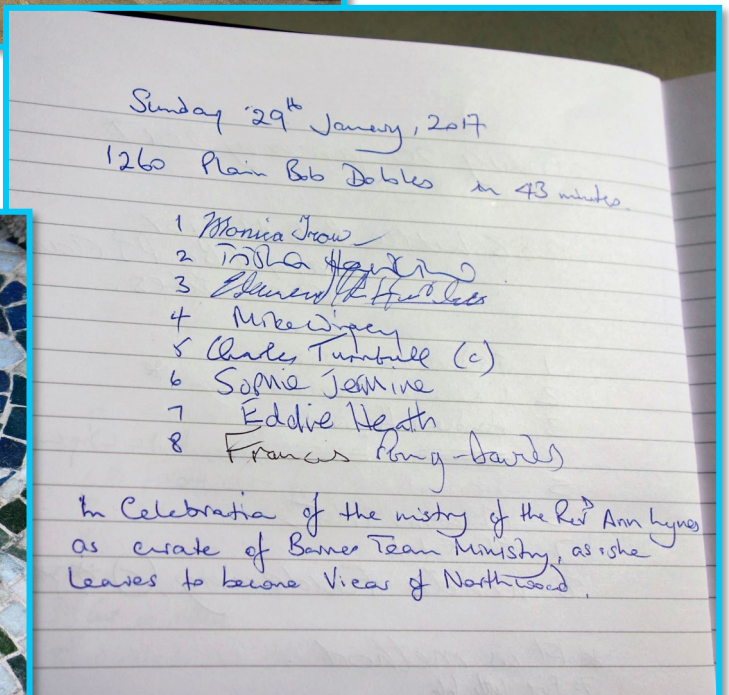 Sunday 29th January, 2017
1260 Plain Bob Dobles in 43 minutes.
1 Monica Trow
2 Trisha Hawkins
3 Edward
4 Mike Wigney
5 Charles Turnbull (c)
6 Sophie Jermine
7 Eddie Heath
8 Francis Pong-Davies
In Celebration of the mistry of the Revd Ann Lynes
as curate of Barnes Team Ministry, as she
leaves to become Vicar of Northwood.